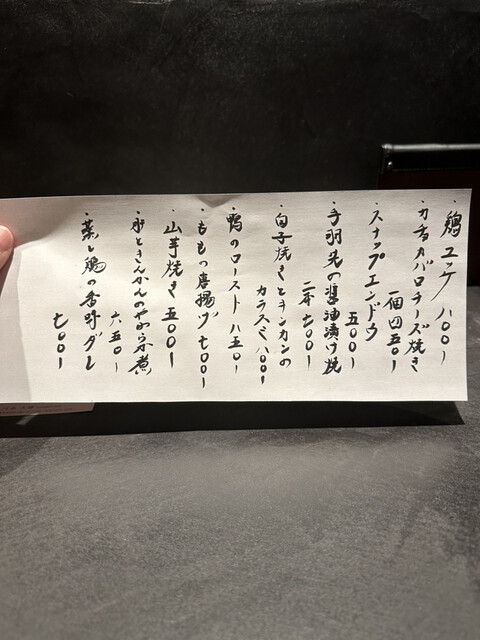 ・鶏ユッケ 八〇〇ー
・カチョカバロチーズ焼き
一個四五〇ー
・スナップエンドウ
五〇〇ー
・手羽先の醤油漬け焼
二本七〇〇ー
・白子焼きとキンカンの
カラスミ八〇〇ー
・鴨のロースト 八五〇ー
・ももの唐揚げ 七〇〇ー
・山芋焼き 五〇〇ー
・肝ときんかんのやわらか煮
六五〇ー
・蒸し鶏の香味ダレ
七〇〇ー